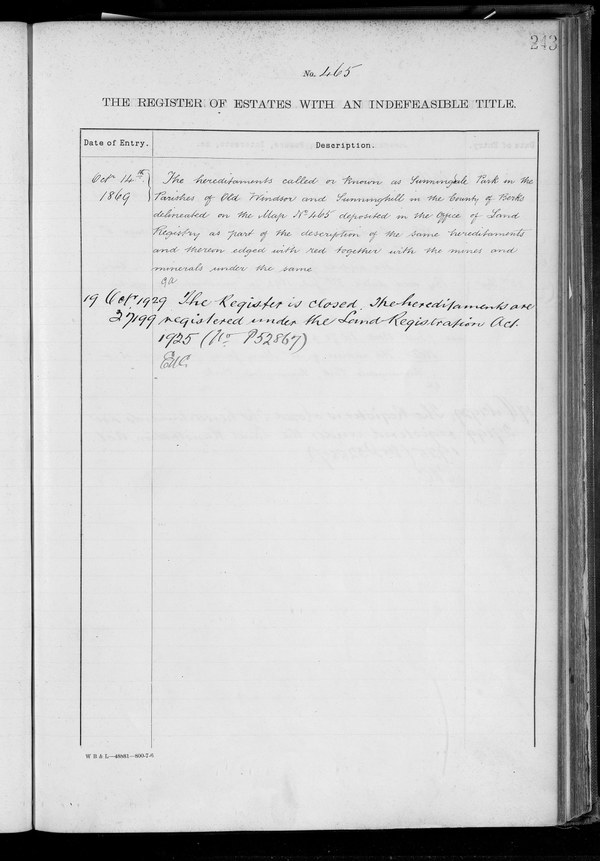 243
No. 465
THE REGISTER OF ESTATES WITH AN INDEFEASIBLE TITLE.
Date of Entry. Description.
Octr 14th 1869
The hereditaments called or known as Sunningdale Park in the
Parishes of Old Windsor and Sunninghill in the County of Berks
delineated on the Map No 465 deposited in the Office of Land
Registry as part of the description of the same hereditaments
and thereon edged with red together with the mines and
minerals under the same
19 Octr 1929 The Register is closed. The hereditaments are
27199 registered under the Land Registration Act.
1925 (No P52867)
W B & L—46861—600-7-6